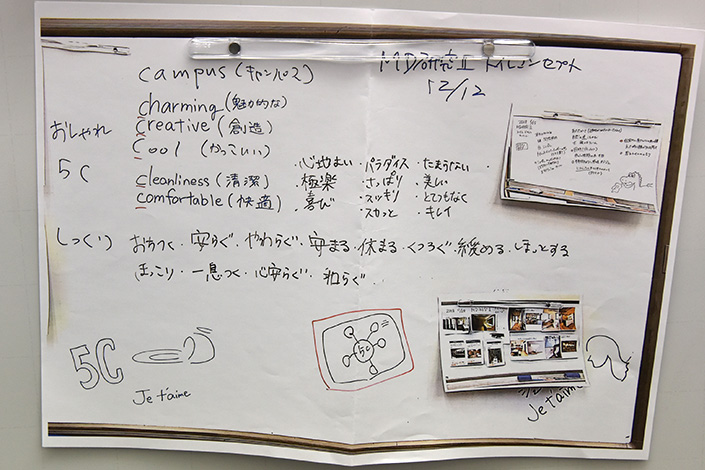 campus (キャンパス)
MD研究Ⅱ トイレコンセプト
12/12
charming (魅力的な)
おしゃれ
creative (創造)
Cool (かっこいい)
5C
・心地よい ・パラダイス ・たまらない ・
cleanliness (清潔) ・極楽 ・さっぱり ・美しい
comfortable (快適) ・喜び ・スッキリ ・とてつもなく
・スカッと ・キレイ
しっくり
おちつく・安らぐ・やわらぐ・守まる・休まる・くつろぐ・緩める・ほっとする
ほっこり・一息つく・心安らぐ・和らぐ
5C
Je t'aime
5C
Je t'aime